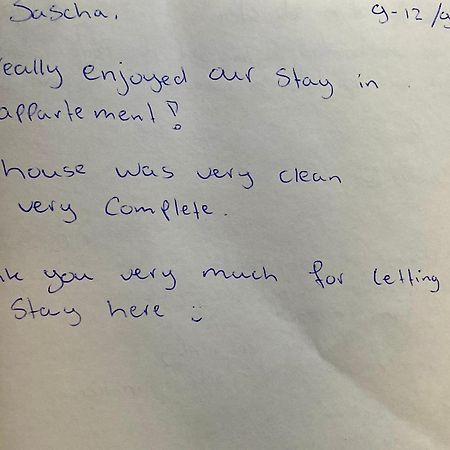 Sascha,
9-12 /9
really enjoyed our stay in
appartement!
house was very clean
very complete.
you very much for letting
stay here :)